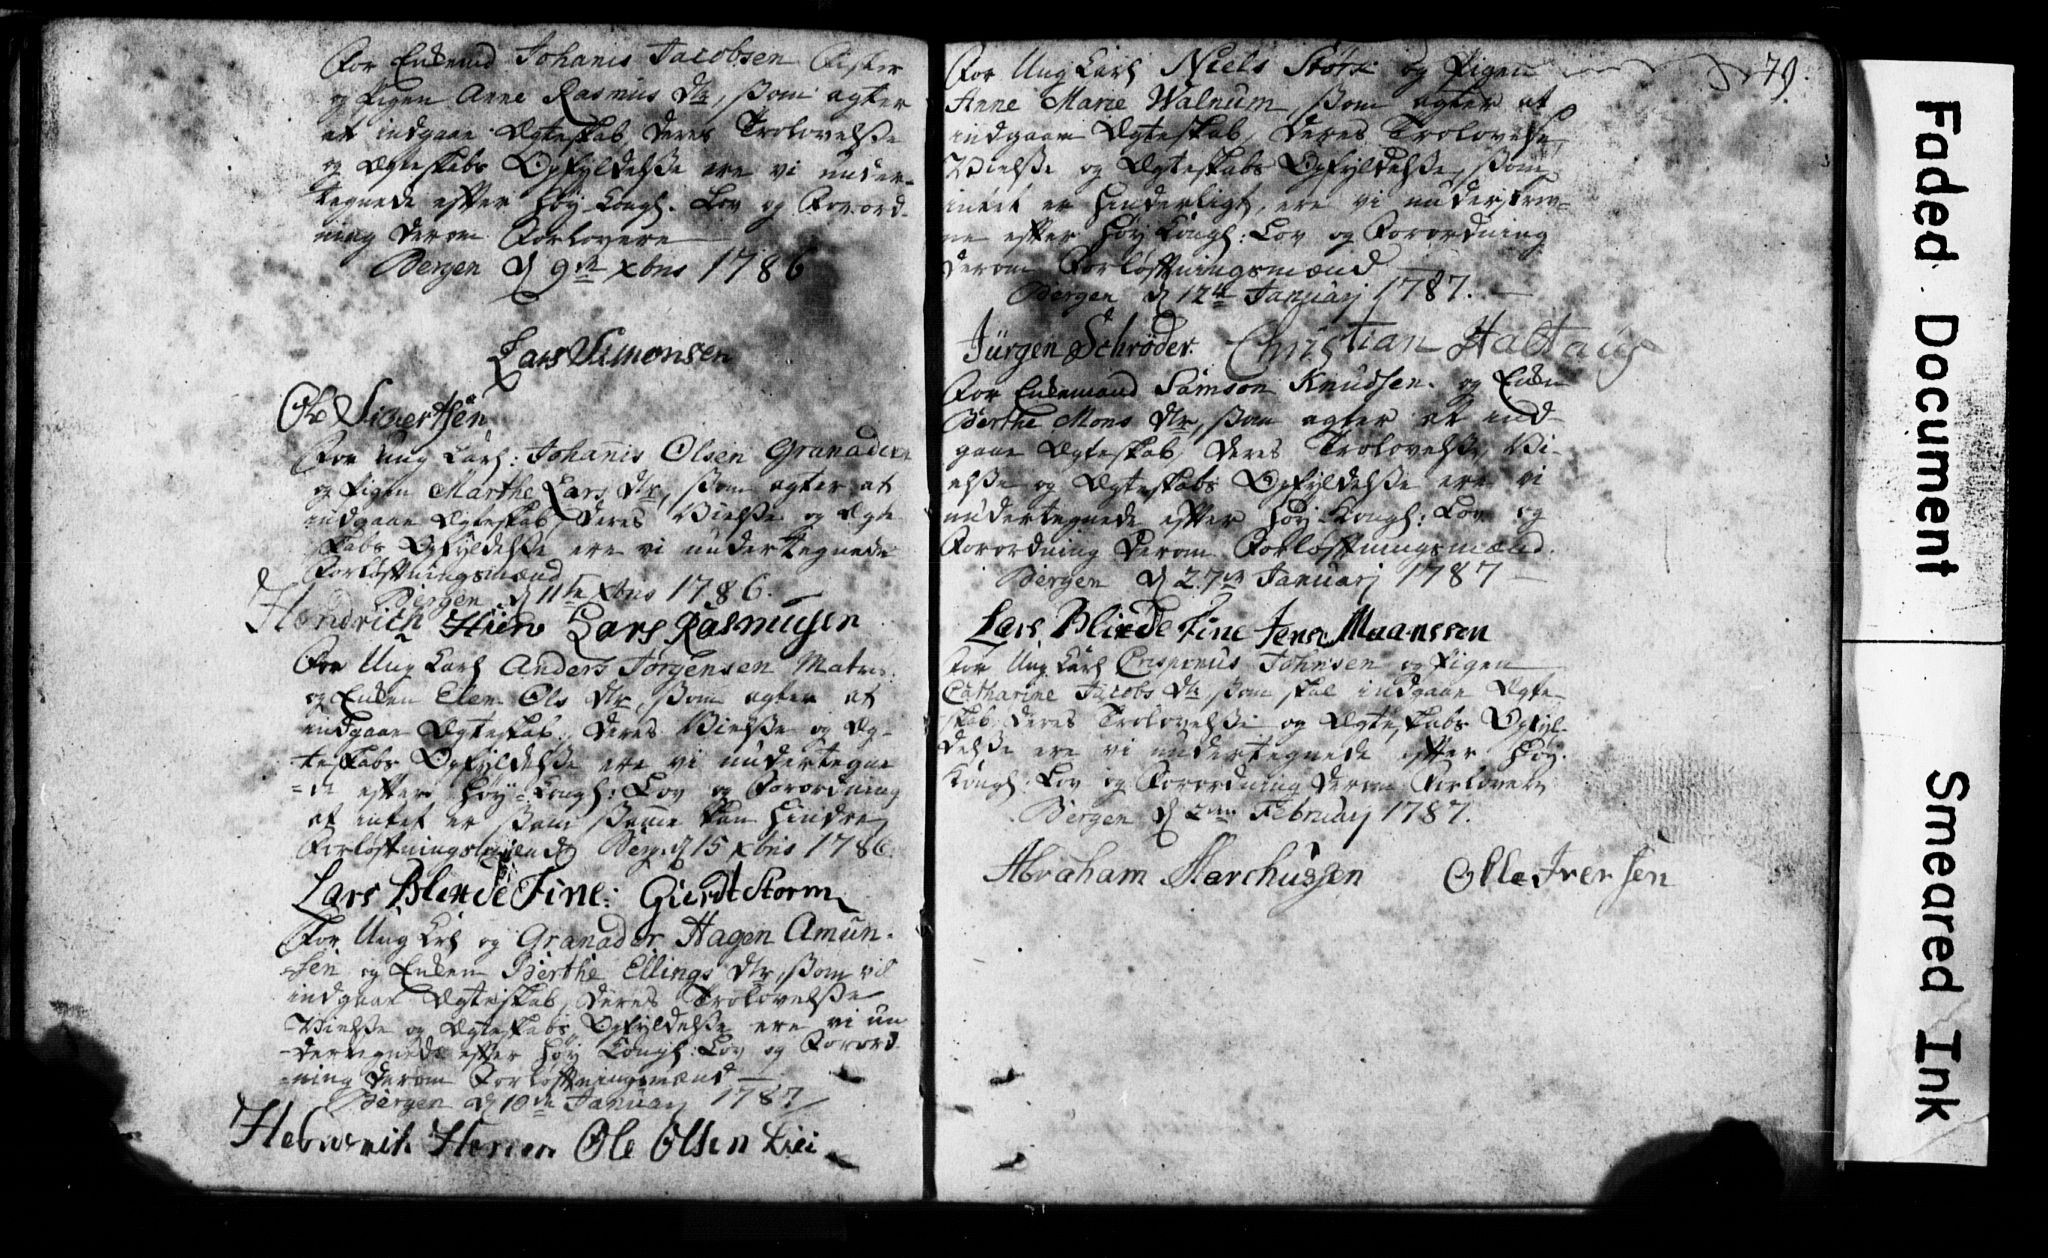 For Enkemd Johanis Jacobsen Fisker
og Pigen Anne Rasmus dtr, som agter
at indgaae Ægteskab, deres Trolovelse
og Ægteskabs Opfyldelse ere vi under-
tegnede efter Høy Kongl. Lov og Forord-
ning derom Forlovere
Bergen d 9de xbris 1786
Lars Simonsen
Ole Sivertsen
For Ung Karl: Johanis Olsen Granadeer
og Pigen Marthe Lars dtr, som agter at
indgaae Ægteskab, deres Vielse og Ægte
skabs Opfyldelse ere vi undertegnede
Forløftningsmænd
Bergen d 11te xbris 1786.
Hendrich Lars Rasmusen
For Ung Karl Anders Jørgensen Matr:
og Enken Elen Ols dtr, som agter at
indgaae Ægteskab, deres Vielse og Æg-
teskabs Opfyldelse ere vi undertegne
=de efter Høy Kongl: Lov og Forordning
at intet er som samme kan hindre
Forløftningsmænd Berg: d 15 xbris 1786.
Lars Blinde Fine: Gierdt Storm
For Ung Krl og Granader Hagen Amun-
sen og Enken Berthe Ellings dtr, som vil
indgaae Ægteskab, deres Trolovelse
Vielse og Ægteskabs Opfyldelse ere vi un
-dertegnede efter Høy Kongl: Lov og Forord-
-ning derom Forløftningsmænd
Bergen d 10de Januarj 1787
Ole Olsen
79.
For Ung Karl Niels og Pigen
Anne Marie Walnum, som agter at
indgaae Ægteskab, deres Trolovelse,
Vielse og Ægteskabs Opfyldelse, som
intet er hinderligt, ere vi underskrev-
ne efter Høy Kongl: Lov og Forordning
derom Forløftningsmænd
Bergen d 12te Januarj 1787.
Jürgen Schrøder. Christian
For Enkemand Samson Knudsen og Enken
Berthe Mons dtr, som agter at ind-
gaae Ægteskab, deres Trolovelse, Vi-
else og Ægteskabs Opfyldelse ere vi
undertegnede efter Høy Kongl: Lov og
Forordning derom Forløftningsmænd.
Bergen d 27de Januarj 1787
Lars Blinde Fine Jens Maansson
For Ung Karl Crispinus Johnsen og Pigen
Catharine Jacobs dtr, som skal indgaae Ægte-
skab, deres Trolovelse og Ægteskabs Opfyl-
delse ere vi undertegnede efter Høy
Kongl: Lov og Forordning derom Forlovere
Bergen d 2den Februarj 1787.
Abraham Marchussen Olle Iversen
Faded Document
Smeared Ink